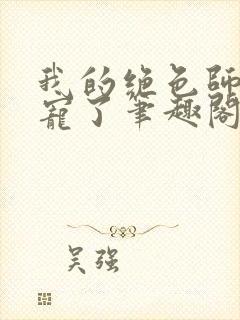 我的绝色师
宠了笔趣阁
吴强